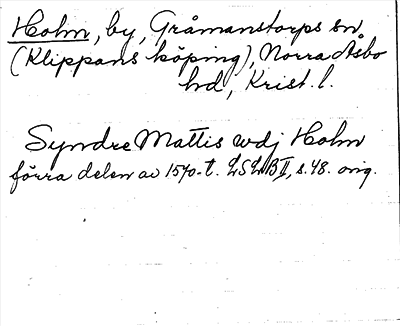 Holm, by, Gråmanstorps sn,
(Klippans köping), Norra Åsbo
hd, Krist. l.
Syndre Mattis wdj Holm
förra delen av 1570-t. LSLB II, s. 48. orig.